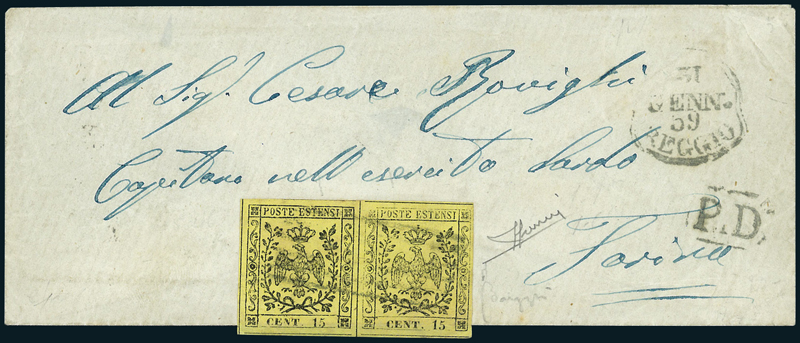 Al Sig.r Cesare Rovighi
31
GENN.
59
REGGIO
Capitano nell esercito Sardo
P.D.
Torino
POSTE ESTENSI
CENT. 15
POSTE ESTENSI
CENT. 15